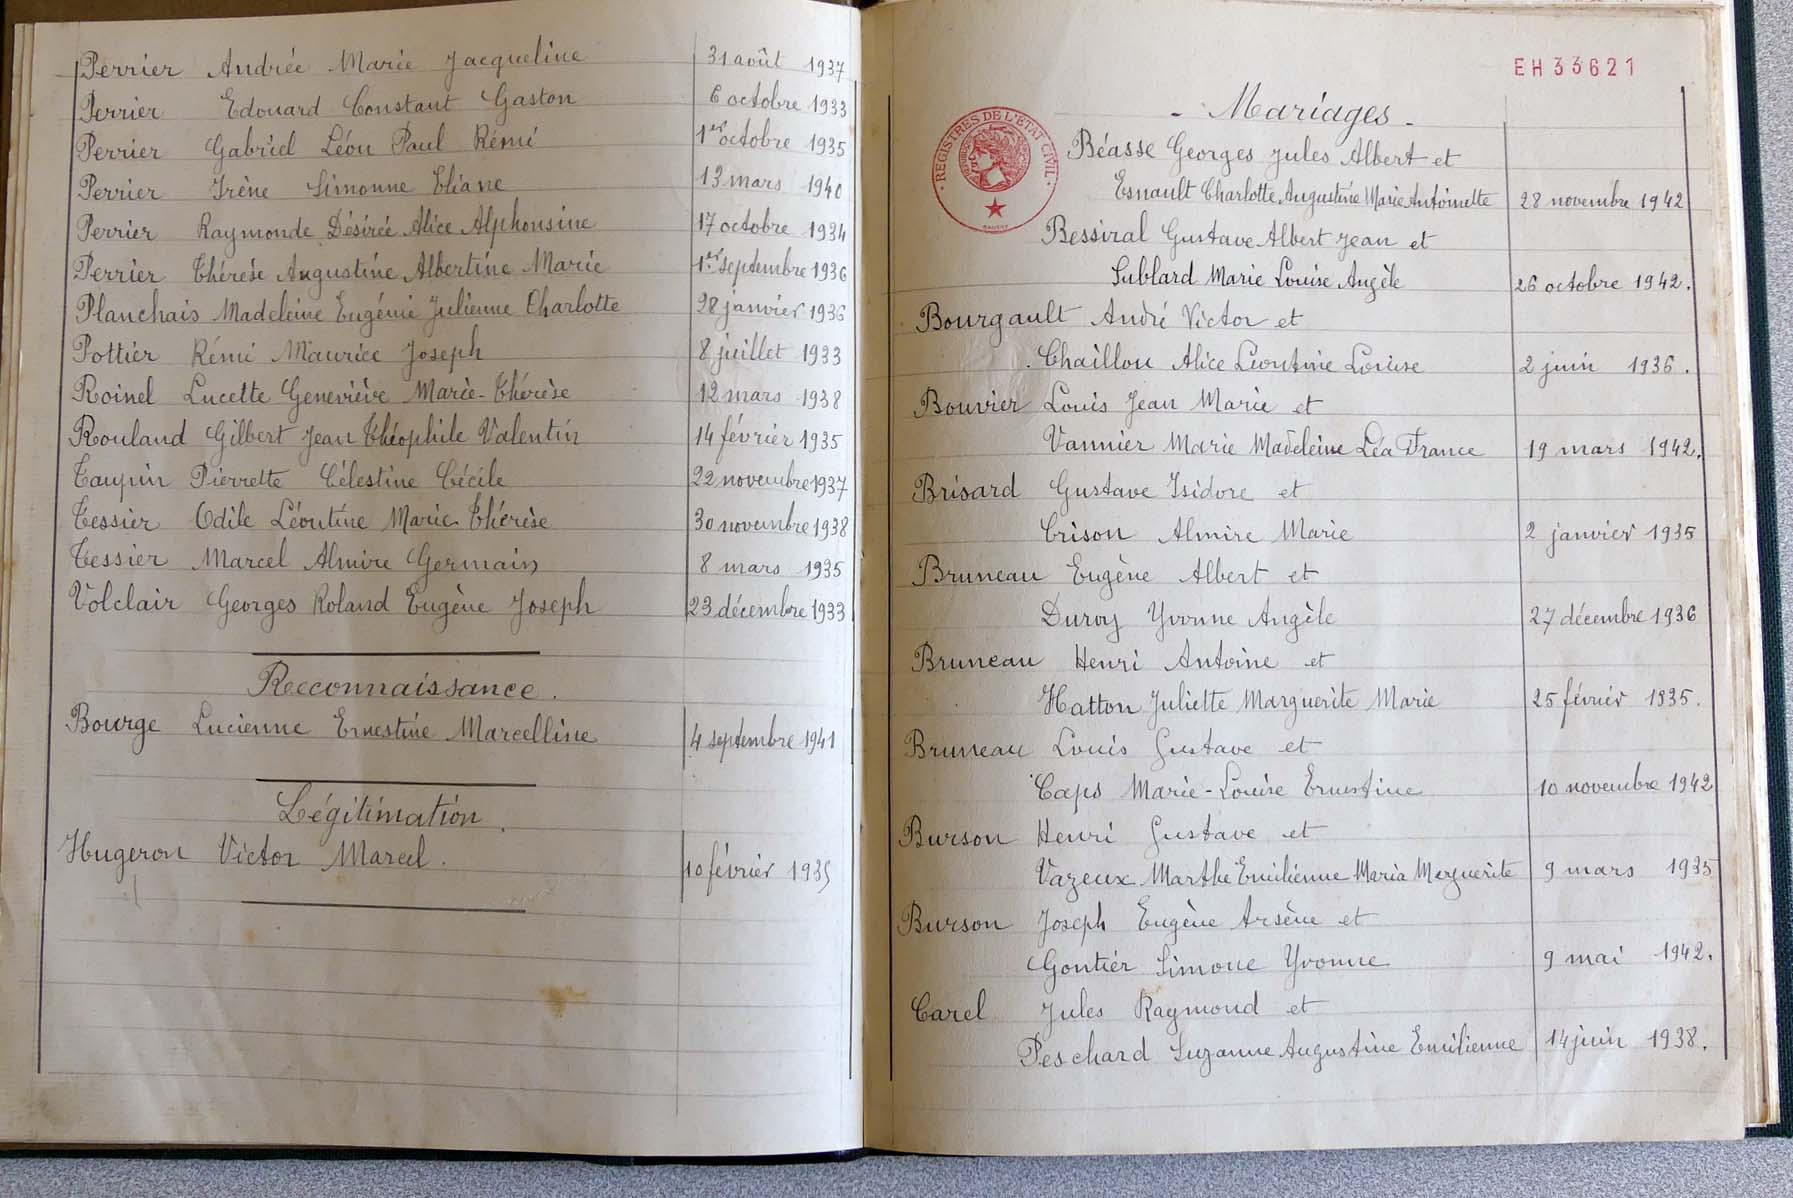 Perrier Andrée Marie Jacqueline 31 août 1937
Perrier Edouard Constant Gaston 6 octobre 1933
Perrier Gabriel Léon Paul Rémi 1er octobre 1935
Perrier Irène Simonne Eliane 13 mars 1940
Perrier Raymonde Désirée Alice Alphonsine 17 octobre 1934
Perrier Thérèse Augustine Albertine Marie 1er septembre 1936
Planchais Madeleine Eugénie Julienne Charlotte 28 janvier 1936
Pottier Rémi Maurice Joseph 8 juillet 1933
Roinel Lucette Geneviève Marie-Thérèse 12 mars 1938
Rouland Gilbert Jean Théophile Valentin 14 février 1935
Taupin Pierrette Célestine Cécile 22 novembre 1937
Tessier Odile Léontine Marie Thérèse 30 novembre 1938
Tessier Marcel Almire Germain 8 mars 1935
Volclair Georges Roland Eugène Joseph 23 décembre 1933
Reconnaissance.
Bourge Lucienne Ernestine Marcelline 4 septembre 1941
Légitimation.
Hugeron Victor Marcel. 10 février 1935
EH33621
- Mariages -
REGISTRES DE L'ÉTAT CIVIL
Béasse Georges Jules Albert et
Esnault Charlotte Augustine Marie Antoinette 28 novembre 1942
Bessiral Gustave Albert Jean et
Sublard Marie Louise Angèle 26 octobre 1942.
Bourgault André Victor et
Chaillou Alice Léontine Louise 2 juin 1936.
Bouvier Louis Jean Marie et
Vannier Marie Madeleine Léa France 19 mars 1942.
Brisard Gustave Isidore et
Crison Almire Marie 2 janvier 1935
Bruneau Eugène Albert et
Duroy Yvonne Angèle 27 décembre 1936
Bruneau Henri Antoine et
Hatton Juliette Marguerite Marie 25 février 1935.
Bruneau Louis Gustave et
Caps Marie-Louise Ernestine 10 novembre 1942
Burson Henri Gustave et
Vazeux Marthe Emilienne Maria Marguerite 9 mars 1935
Burson Joseph Eugène Arsène et
Gontier Simone Yvonne 9 mai 1942.
Carel Jules Raymond et
Peschard Suzanne Augustine Emilienne 14 juin 1938.